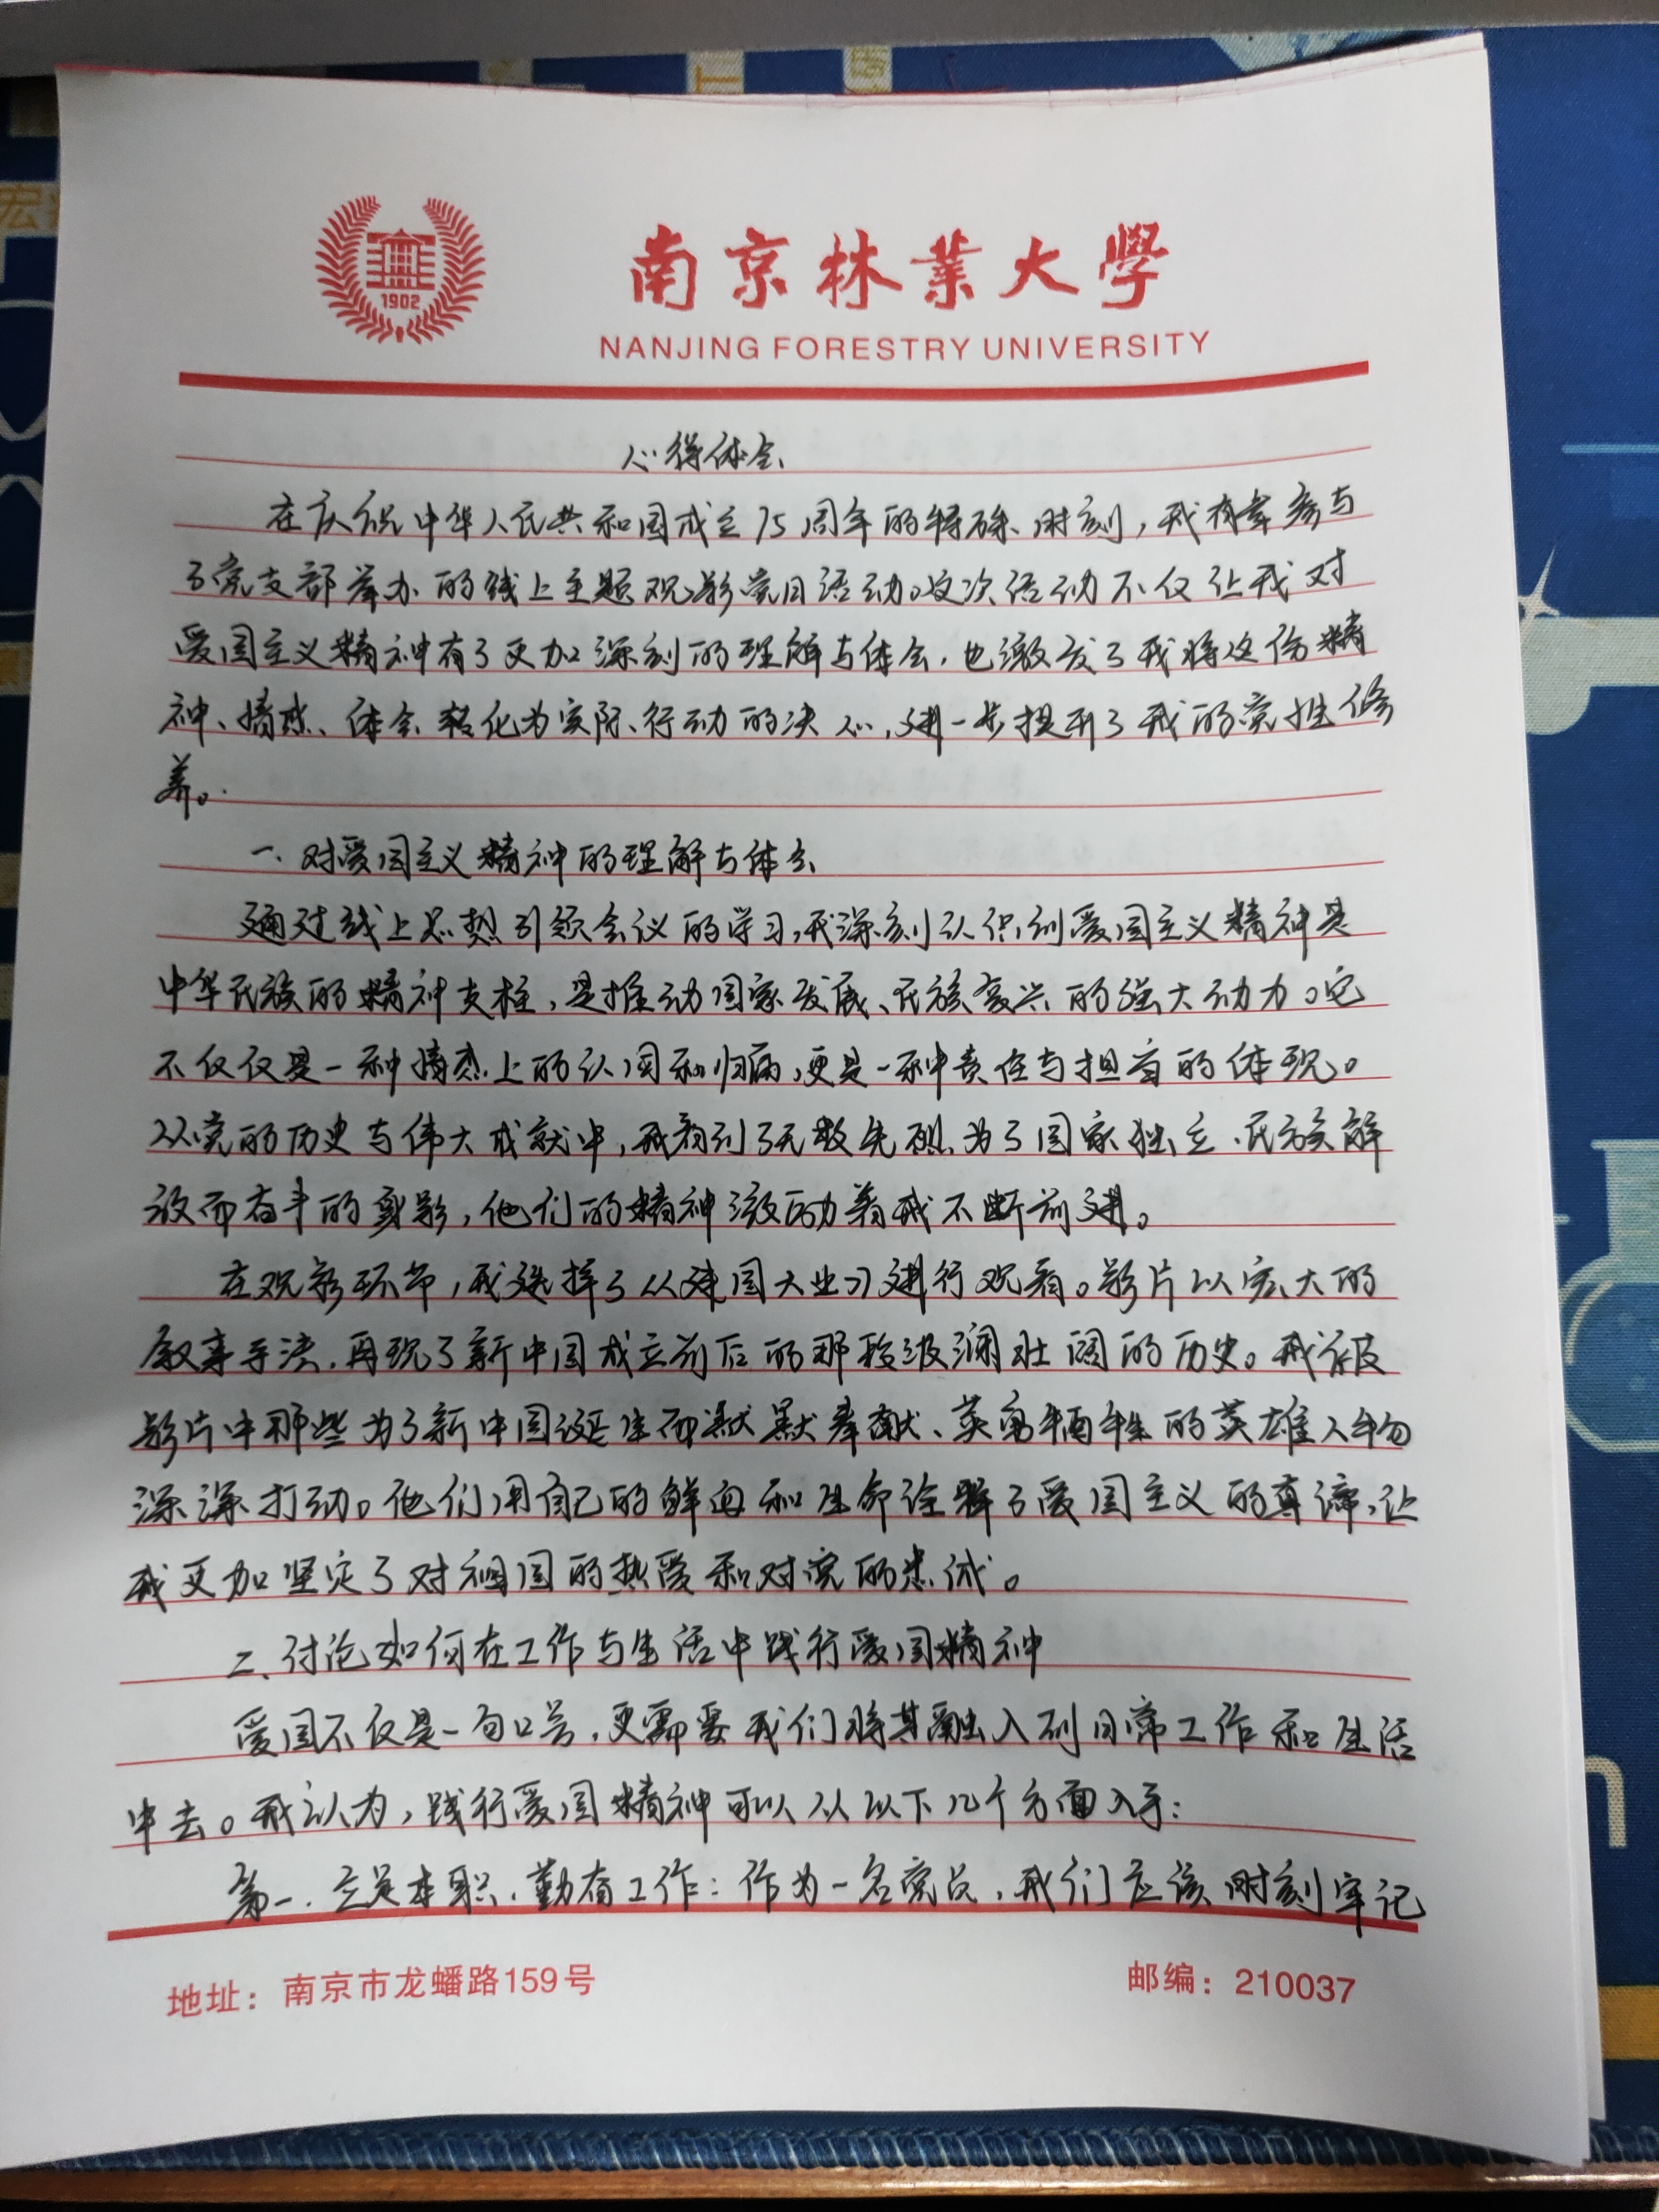 1902
南京林業大學
NANJING FORESTRY UNIVERSITY
心得体会
在庆祝中华人民共和国成立75周年的特殊时刻，我有幸参与
了党支部举办的线上主题观影党日活动。这次活动不仅让我对
爱国主义精神有了更加深刻的理解与体会，也激发了我将这份精
神、情感、体会转化为实际行动的决心，进一步提升了我的党性修
养。
一、对爱国主义精神的理解与体会
通过线上思想引领会议的学习，我深刻认识到爱国主义精神是
中华民族的精神支柱，是推动国家发展、民族复兴的强大动力。它
不仅仅是一种情感上的认同和归属，更是一种责任与担当的体现。
从党的历史与伟大成就中，我看到了无数先烈为了国家独立、民族解
放而奋斗的身影，他们的精神激励着我不断前进。
在观影环节，我选择了《建国大业》进行观看。影片以宏大的
叙事手法，再现了新中国成立前后的那段波澜壮阔的历史。我被
影片中那些为了新中国诞生而默默奉献、英勇牺牲的英雄人物
深深打动。他们用自己的鲜血和生命诠释了爱国主义的真谛，让
我更加坚定了对祖国的热爱和对党的忠诚。
二、讨论如何在工作与生活中践行爱国精神
爱国不仅是一句口号，更需要我们将其融入到日常工作和生活
中去。我认为，践行爱国精神可以从以下几个方面入手：
第一、立足本职、勤奋工作：作为一名党员，我们应该时刻牢记
地址：南京市龙蟠路159号
邮编：210037